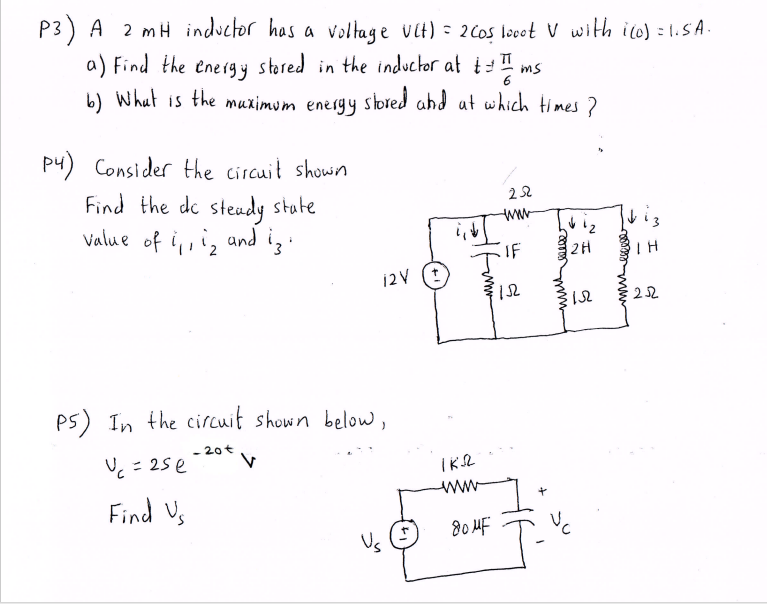 P3) A 2 mH inductor has a voltage v(t) = 2 cos 1000t V with i(0) = 1.5 A.
a) Find the energy stored in the inductor at t = π/6 ms
b) What is the maximum energy stored and at which times ?
P4) Consider the circuit shown
Find the dc steady state
value of i₁, i₂ and i₃.
2Ω
i₁ i₂ i₃
1F 2H 1H
12V + -
1Ω 1Ω 2Ω
P5) In the circuit shown below,
Vc = 25e^-20t V
Find Vs
1KΩ
+
80 μF Vc
Vs + -
-